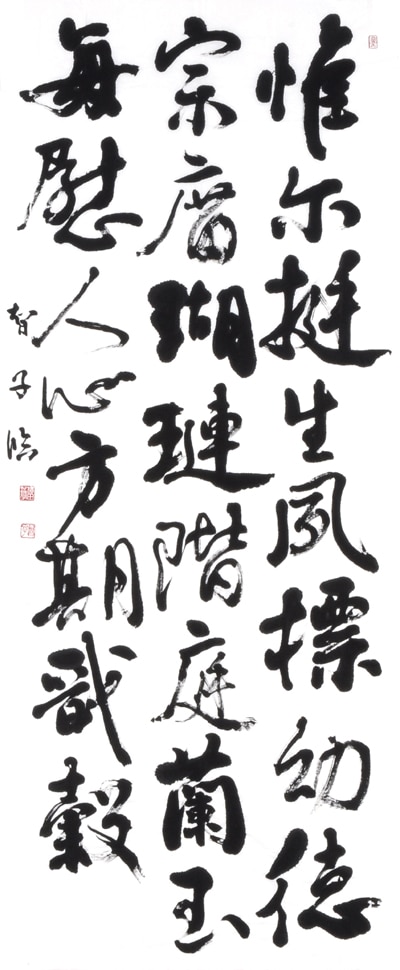 惟尔挺生夙標幼德
宗庿瑚璉階庭蘭玉
毎慰人心方期戩穀
智子臨